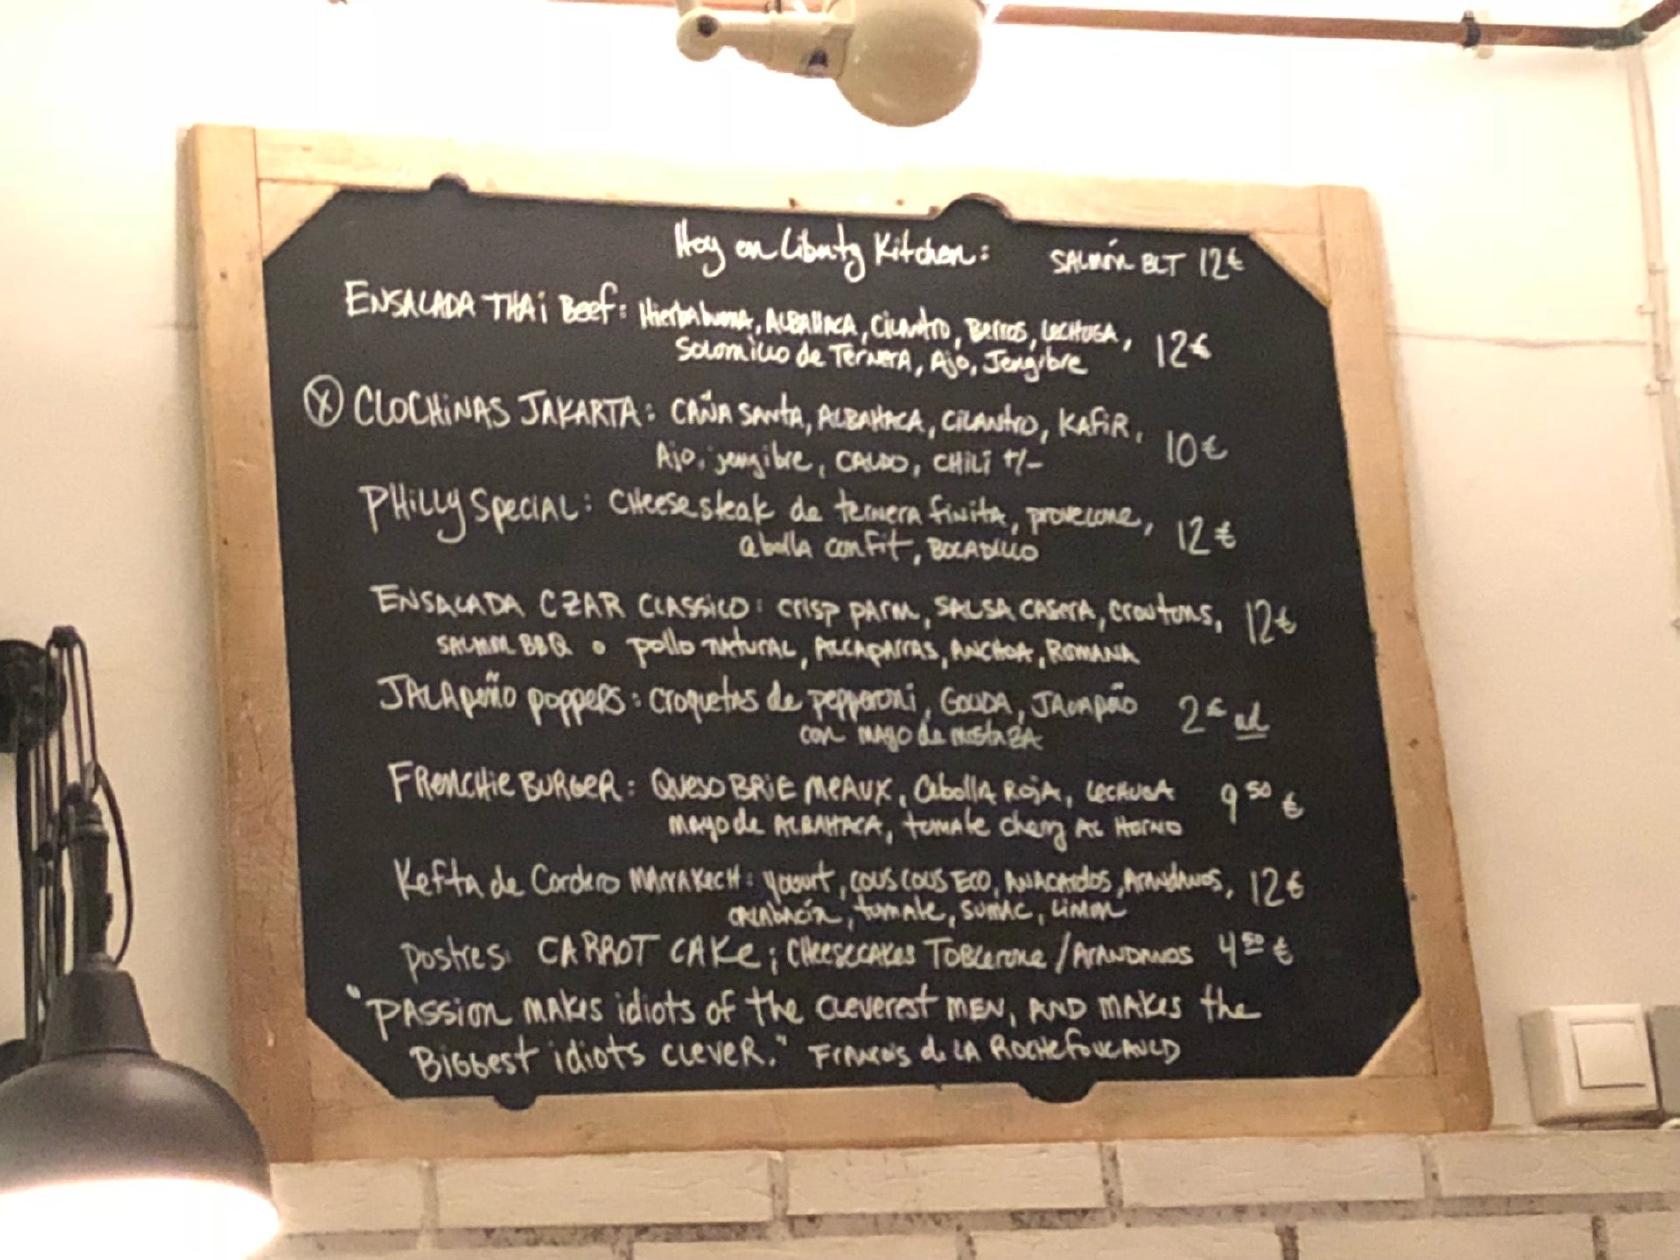 Hoy en Liberty Kitchen: SALMÓN BLT 12€
ENSALADA THAi Beef: Hierbabuena, ALBAHACA, Cilantro, Berros, LECHUGA,
Solomillo de TERNERA, Ajo, Jengibre 12€
Ⓧ CLOCHiNAS JAKARTA: CAÑA SANTA, ALBAHACA, CILANTRO, KAFiR,
Ajo, jengibre, CALDO, CHiLi +/- 10€
PHiLLy SpeciAL: CHeesesteak de ternera finita, provolone,
cebolla confit, BOCADILLO 12€
ENSALADA CZAR CLASSiCO: crisp parm, SALSA CASERA, croutons,
SALMON BBQ o pollo NATURAL, ALCAPARRAS, ANCHOA, ROMANA 12€
JALApeño poppers: croquetas de pepperoni, GOUDA, JALAPEÑO
con mayo de mostaza 2€ ud
FRENCHie BURGER: QUESO BRiE MEAUX, Cebolla ROJA, LECHUGA
mayo de ALBAHACA, tomate cherry AL HORNO 9.50 €
Kefta de Cordero MARRAKECH: yogurt, COUS COUS ECO, ANACARDOS, ARANDANOS,
CALABACÍN, tomate, sumac, LIMON 12€
postres: CARROT CAKe; CHeesecakes TOBLerone / ARANDANOS 4.50 €
"PASSION MAKES idiots of the CLEVEREST MEN, AND MAKES the
BiGGEST idiOTS CLEVER." FRANCOIS de LA ROCHEFOUCAULD